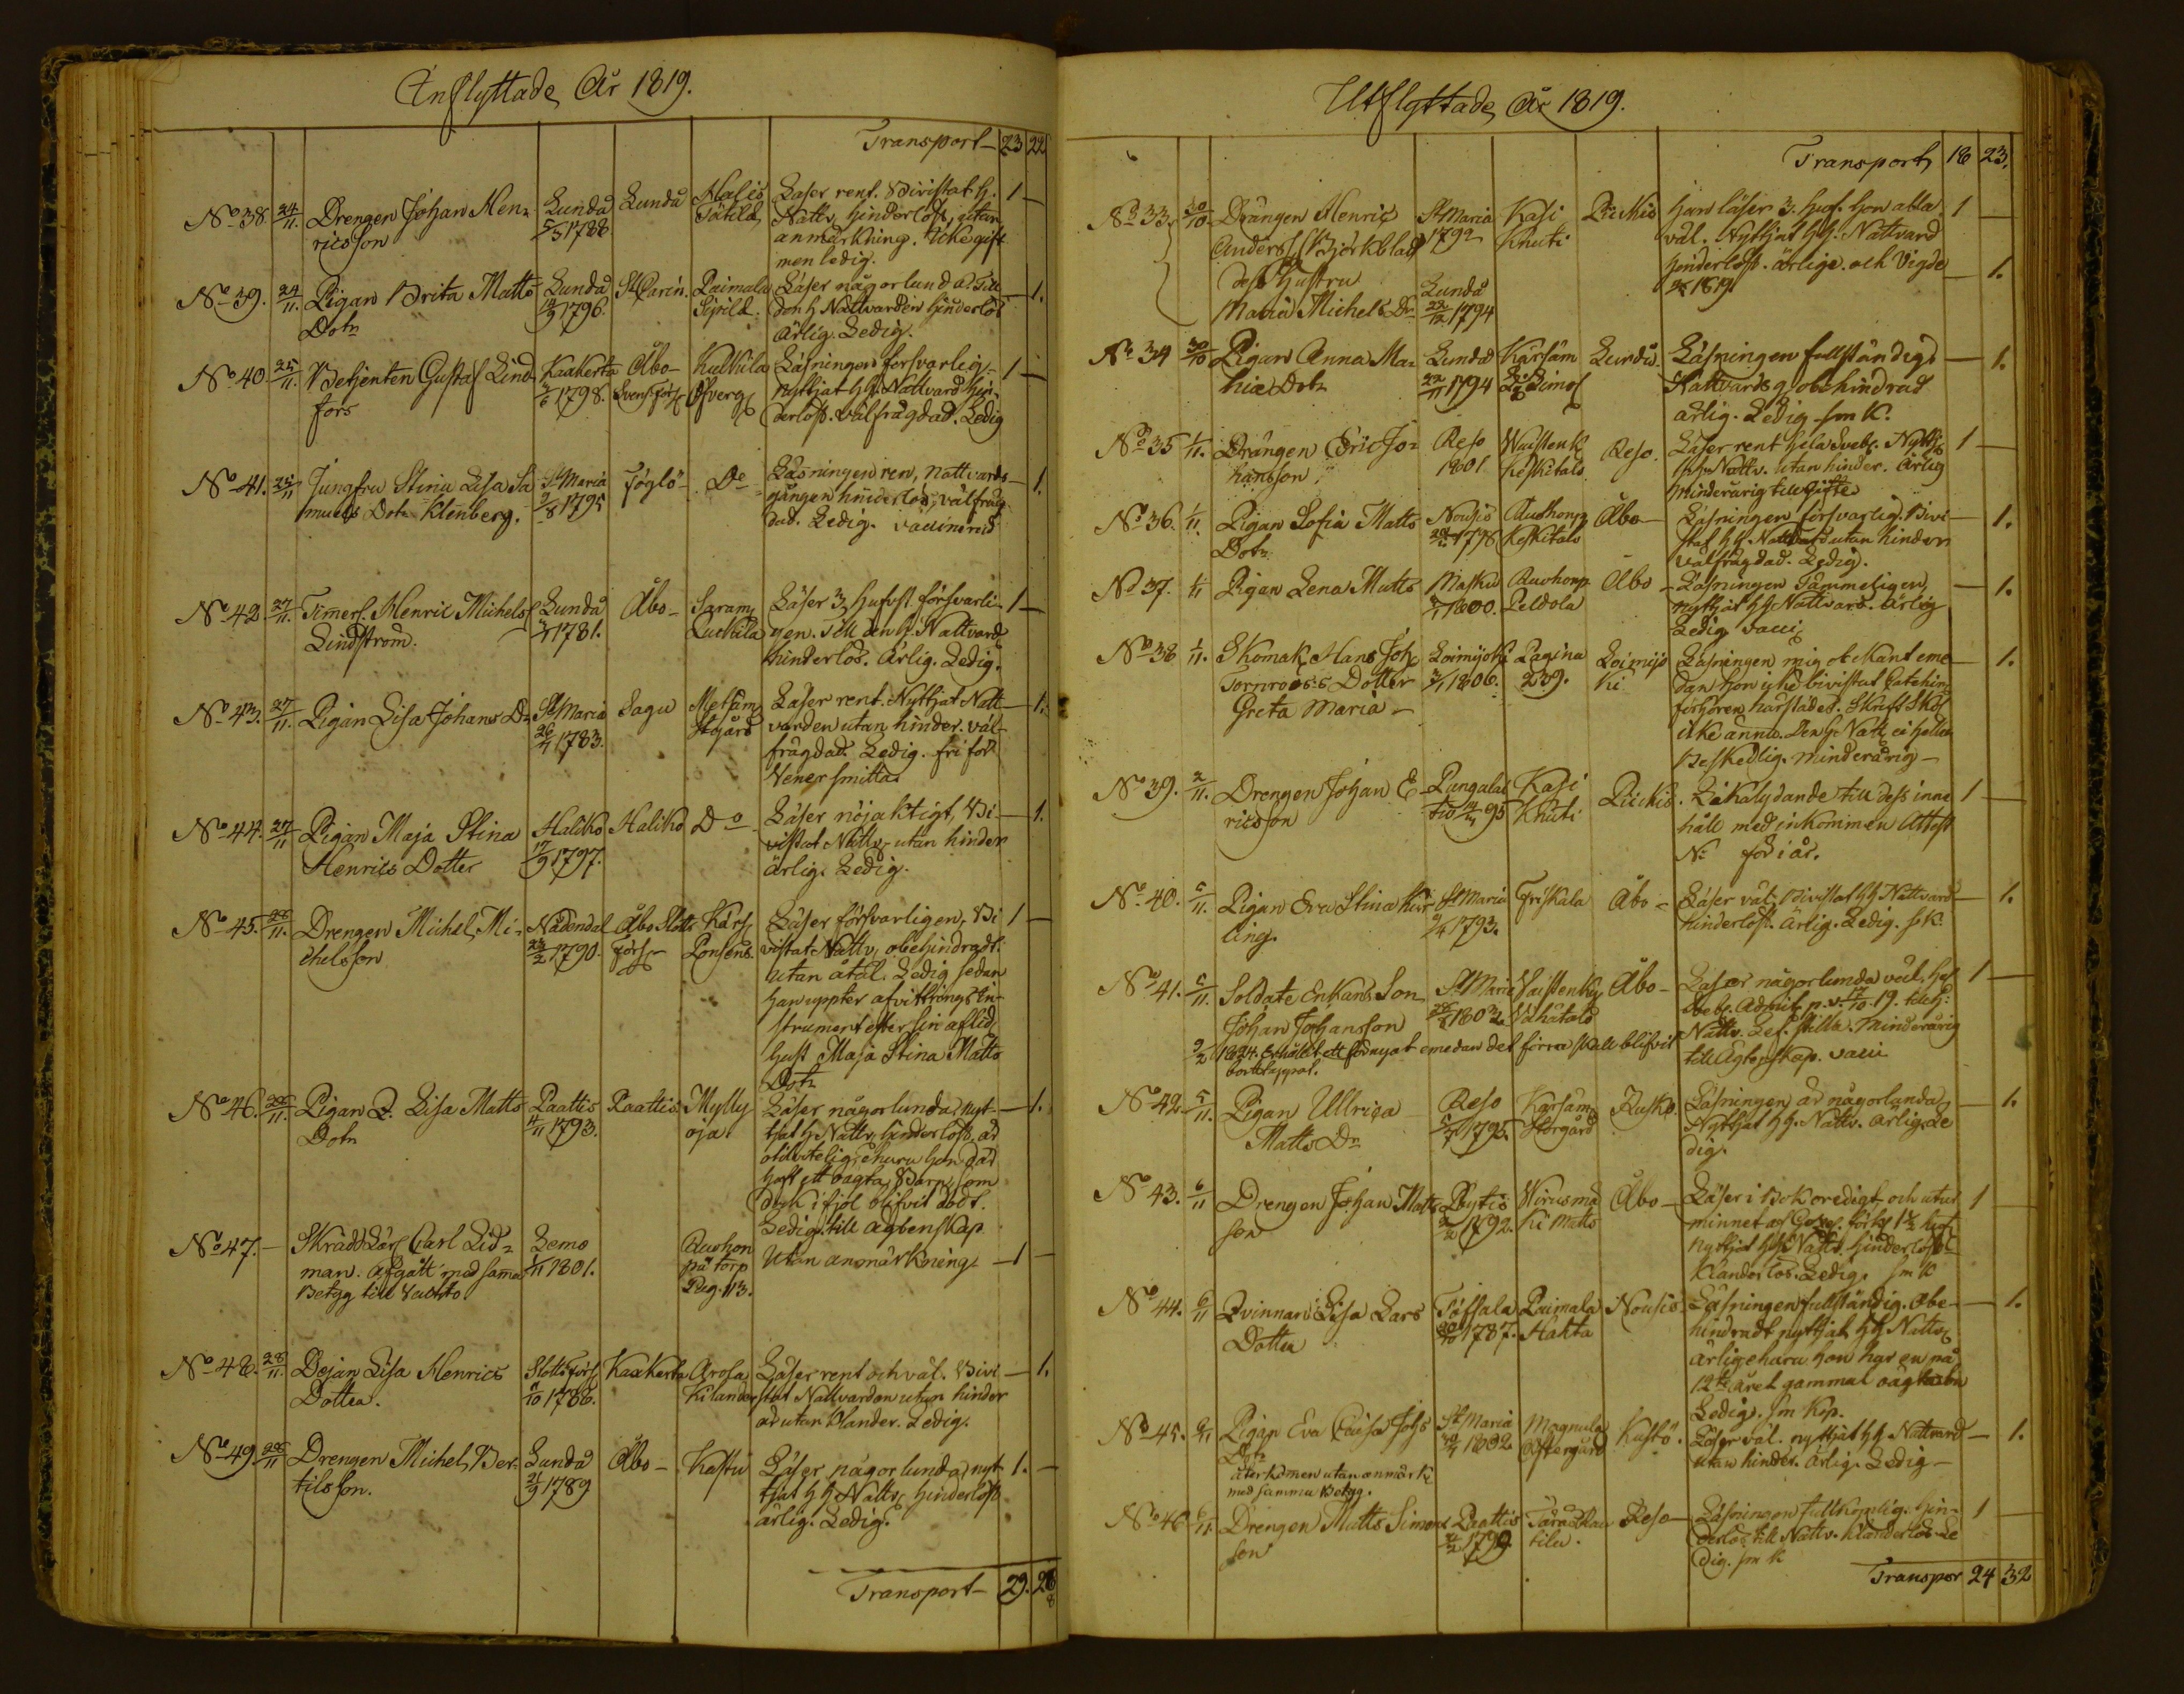 Inflyttade År 1819.
Transport 23 22
No 38 24/11. Drengen Johan Hen-
ricsson
Lundå
1788
Lundå
Halis
Tätilä
Läser rent. Bivistat h.
Nattv. hinderlöst, utan
anmärkning. Icke gift
men ledig.
1 —
No 39. 24/11. Pigan Brita Matts
Dotr
Lundå
1796.
St Carin.
Paimala
Sipilä.
Läser någorlunda. Till
den h Nattvarden hinderlös
Ärlig. Ledig.
— 1.
No 40 25/11. Betjenten Gustaf Lind-
fors
Kaakerta
1798.
Åbo
Svensk förs
Kulkila
Öfverg
Läsningen försvarlig.
Nyttjat HH. Nattvard hin-
derlöst. Välfrägdad. Ledig
1 —
No 41. 25/11 Jungfru Stina Lisa Sa-
muels Dotr Klenberg.
St Maria
9/8 1795
Föglö
Do
Läsningen ren, nattvards-
gången hinderlös, välfräg-
dad. Ledig. vaccinerad
— 1.
No 42. 27/11. Timmers. Henric Michelss
Lindström.
Lundå
1781.
Åbo
Saram
Luckila
Läser 3 Hufvst. försvarli-
gen. Till den h. Nattvard
hinderlös. Ärlig. Ledig.
1 —
No 43. 27/11 Pigan Lisa Johans Dr
St Maria
26/4 1783.
Sagu
Metsäm
Stgård
Läser rent. Nyttjat Natt-
varden utan hinder. väl-
frägdad. Ledig. fri för
Vener smitta
— 1.
No 44. 27/11 Pigan Maja Stina
Henrics Dotter
Haliko
17/9 1797.
Haliko
Do
Läser nöjaktigt, Bi-
vistat Nattv. utan hinder
ärlig. Ledig.
— 1.
No 45. 28/11. Drengen Michel Mi-
chelsson
Nådendal
23/2 1790.
Åbo Slotts
förs
Kärs
Ponsens.
Läser försvarligen, Bi
vistat Nattv. obehindradt.
Utan åtal. Ledig sedan
han uppter afvittrings In-
strument efter sin aflid
Hust Maja Stina Matts
Dotr
1 —
No 46. 28/11. Pigan Lisa Matts
Dotr
Paattis
1793.
Paattis
Mylly
oja
Läser någorlunda, nyt-
tjat h. Nattv. hinderlöst, är
ehuru hon
haft ett oägta Barn, som
dock i fjol blifvit dödt.
Ledig till Ägtenskap
— 1.
No 47. — Skrädd Lärl Carl Lid-
man. Afgått med samma
Betyg till
Lemo
1801.
Rauhon
pä torp
Pag. 113.
Utan anmärkning. — 1 —
No 48. 28/11. Pejan Lisa Henrics
Dotter.
Slottsförs
1786.
Kaakerta
Arola
Kilander
Läser rent och väl. Bivi-
stat Nattvarden utan hinder
och utan klander. Ledig.
— 1.
No 49. 28/11 Drengen Michel Ber-
tilsson.
Lundå
21/9 1789
Åbo
Kastu
Läser någorlunda, nyt-
tjat HH Nattv. hinderlöst
ärlig. Ledig.
1. —
Transport 29. 28
Utflyttade År 1819.
Transport 18 23.
No 33. 30/10 Drängen Henric
Anderss Björkblad
dess Hustru
Maria Michels Dr
St Maria
1792
Lundå
22/12 1794
Kasi
Knuti
Piickis
Han läser 3. Huf. hon alla
väl. Nyttjat HH. Nattvard
hinderlöst. ärlige. och Vigde
1819.
1 —
— 1.
No 34 30/10 Pigan Anna Ma-
thiæ Dotr
Lundå
22/11 1794
Kärsäm
Simos
Lundå.
Läsningen fullständig.
Nattvardsg. obehindrad
ärlig. Ledig
— 1.
No 35 1/11. Drängen Eric Jo-
hansson
Reso
1801
Wäistenk
Keskitalo
Reso.
Läser rent hela Sveb. Nyttj
HH. Nattv. utan hinder. Ärlig
minderårig till Gifte
1 —
No 36. 1/11. Pigan Sofia Matts
Dotr
Nousis
1798
Rauhonp
Keskitalo
Åbo
Läsningen försvarlig. Bivi-
stat HH. Nattvard utan hinder
Välfrägdad. Ledig.
— 1.
No 37. 1/11 Pigan Lena Matts
Masku
1800.
Rauhonp
Peldola
Åbo
Läsningen Tämmeligen,
nyttjat HH Nattvard. Ärlig
Ledig vacci
— 1.
No 38 1/11. Skomak. Hans Joh
Tornroos's Dotter
Greta Maria
Loimijoki
1806.
Pagina
239.
Loimijo
ki
Läsningen mig obekant eme-
dan hon icke bivistat Catechis
förhören härstädes. Skrift Skol
icke ännu. Den h Nattv. ej heller
Beskedlig. minderårig
— 1.
No 39. 2/11. Drengen Johan E-
ricsson
Pungalai
tio 95
Kasi
Knuti
Piickis.
Likalydande till dess inne
håll med inkommen Attest
No för i år.
1 —
No 40. 5/11. Pigan Eva Stina Kär-
ling.
St Maria
1793.
Friskala
Åbo
Läser väl. Bivistat HH Nattvard
hinderlöst. Ärlig. Ledig. s K.
— 1.
No 41. 5/11. Soldate Enkans Son
Johan Johansson
St Marie
1803.
Wäistenky
Vähätalo
Åbo
Läser någorlunda väl hel
Sveb. Admit. p. v. 17/10. 19. till h.
Nattv. Lef. stilla. minderårig
till Ägtenskap. vacci
9/2 1824. Erhållit ett förnyat emedan det förra skall blifvit
borttappat.
1 —
No 42. 5/11. Pigan Ullrica
Matts Dr
Reso
1795.
Kärsäm
Storgård
Rusko.
Läsningen är någorlunda,
Nyttjat HH. Nattv. ärlig. Le
dig.
— 1.
No 43. 6/11 Drengen Johan Matts
son
Pöytis
1792.
Wirusmä
ki Matts
Åbo
Läser i Bok oredigt och utur
minnet
nyttjat HH Nattv. hinderlöst
Klanderlös. Ledig. sm K
1 —
No 44. 6/11 Qvinnan Lisa Lars
Dotter
Töfsala
1787.
Paimala
Hakta
Nousis
Läsningen fullständig. Obe-
hindradt nyttjat HH Nattv.
Ärlig ehuru hon har en på
12te året gammal oägta
Ledig. sm Kp.
— 1.
No 45. 6/11 Pigan Eva Caisa Johs
Dotr
återkommen utan anmärkn
med samma Betyg.
St Maria
1802
Magnula
Östergård
Kustö.
Läser väl. nyttjat HH Nattvard
utan hinder. Ärlig. Ledig
— 1.
No 46 6/11. Drengen Matts Simons
son
Paattis
1799
Reso
Läsningen fullkomlig. hin-
derlös till Nattv. klanderlös Le
dig. sm K
1 —
Transpor 24 32